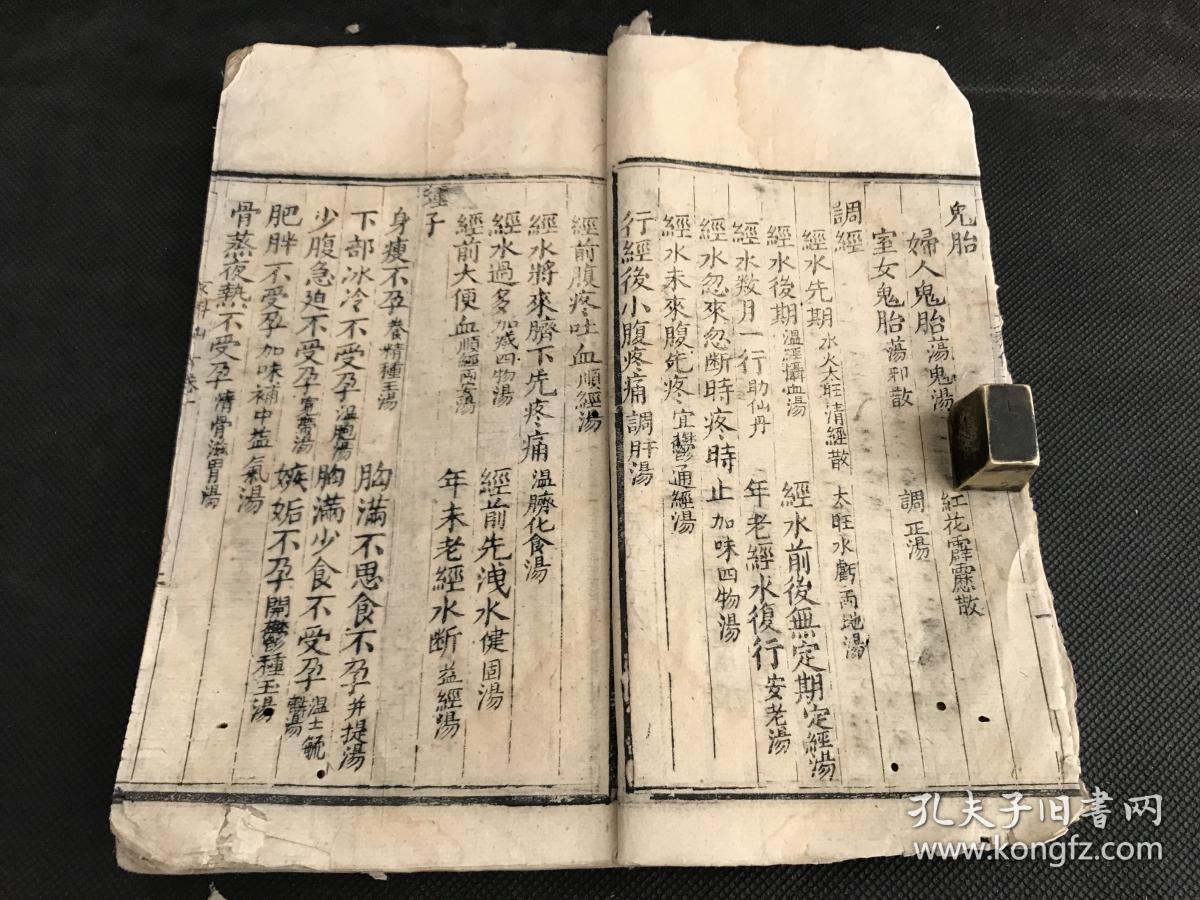 鬼胎
婦人鬼胎 蕩鬼湯 紅花霹靂散
室女鬼胎 蕩邪散 調正湯
調經
經水先期 水火太旺清經散 太旺水虧兩地湯
經水後期 溫經攝血湯 經水前後無定期 定經湯
經水數月一行 助仙丹 年老經水復行 安老湯
經水忽來忽断時疼時止 加味四物湯
經水未來腹先疼 宜鬱通經湯
行經後小腹疼痛 調肝湯
經前腹疼吐血 順經湯
經水將來臍下先疼痛 溫臍化食湯
經水過多 加减四物湯 經前先洩水 健固湯
經前大便血 順經兩安湯 年未老經水断 益經湯
種子
身瘦不孕 養精種玉湯 胸滿不思食不孕 并提湯
下部冰冷不受孕 溫胞湯 胸滿少食不受孕 溫土毓麟湯
少腹急迫不受孕 寬帶湯 嫉妬不孕 開鬱種玉湯
肥胖不受孕 加味補中益氣湯
骨蒸夜熱不受孕 清骨滋胃湯
一
孔夫子旧书网
www.kongfz.com